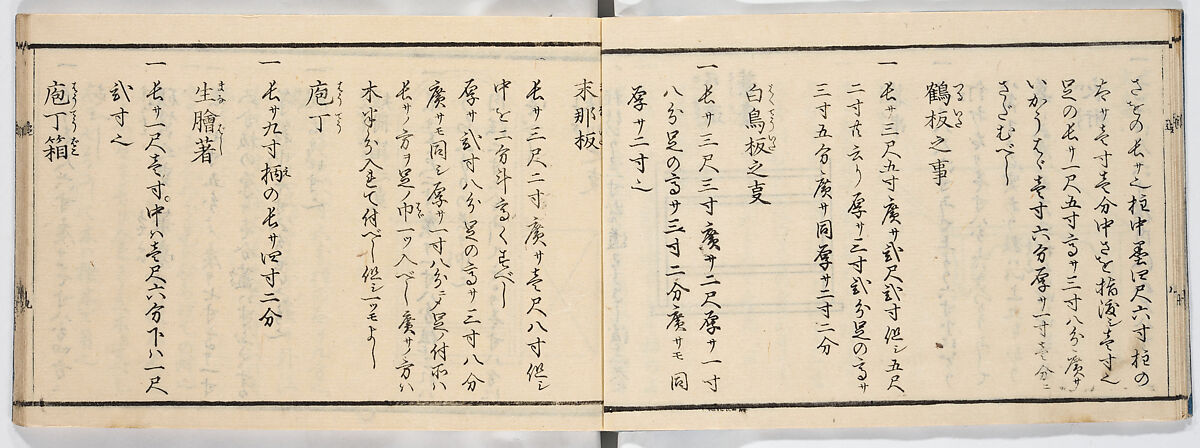 さをの長サ之柱中墨四尺六寸柱の
太サ壱寸壱分中さを指渡シ壱寸之
足の長サ一尺五寸高サ三寸八分廣サ
いかうはゞ壱寸六分厚サ一寸壱分ニ
さだむべし
鶴板之事
つるいた
一 長サ三尺五寸廣サ弐尺弐寸但シ五尺
二寸共云り厚サ二寸弐分足の高サ
三寸五分廣サ同厚サ二寸二分
白鳥板之事
はくてういた
一 長サ三尺三寸廣サ二尺厚サ一寸
八分足の高サ三寸二分廣サモ同
厚サ二寸之
末那板
一 長サ三尺二寸廣サ壱尺八寸但シ
中を二分斗高くすべし
厚サ弐寸八分足の高サ三寸八分
廣サモ同シ厚サ一寸八分ニシ足ノ付所ハ
長サノ方ヲ足ノ巾一ツ入べし廣サノ方ハ
木半分入て付べし但シ一ツモよし
庖丁
はうてう
一 長サ九寸柄の長サ四寸二分
え
生膾著
まなばし
一 長サ一尺壱寸。中ハ壱尺六分下ハ一尺
弐寸之
庖丁箱
はうてうばこ